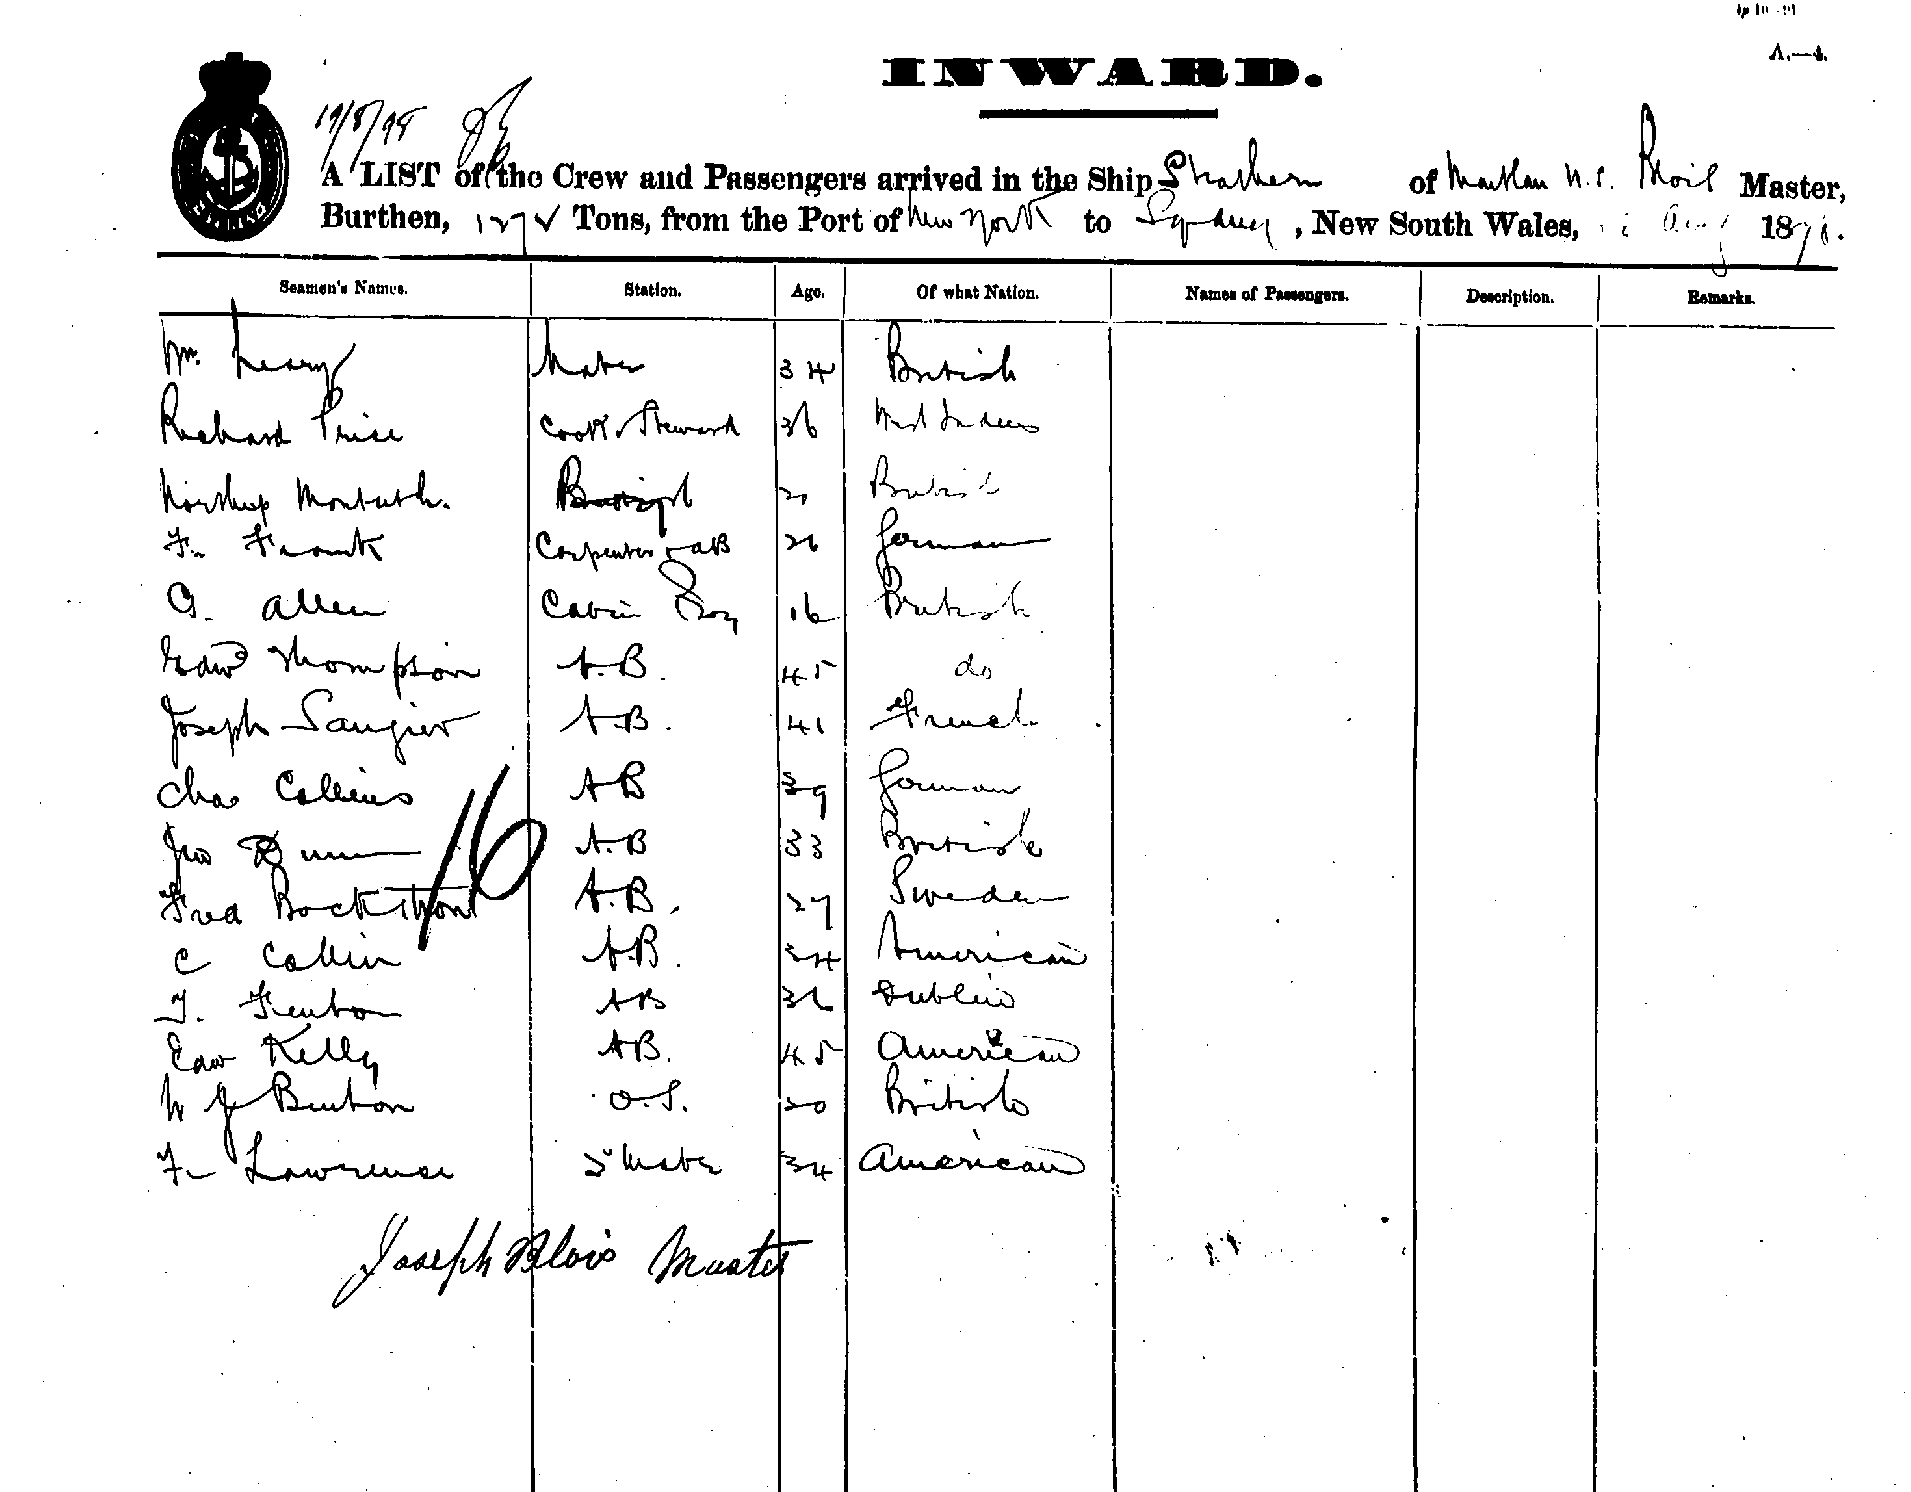 A.—4.
INWARD.
19/8/98
A LIST of the Crew and Passengers arrived in the Ship Strathern of Maitland N.S. Blois Master,
Burthen, 1272 Tons, from the Port of New York to Sydney, New South Wales, Aug 1898.
Seamen's Names. Station. Age. Of what Nation. Names of Passengers. Description. Remarks.
Wm. Leary Mate 34 British
Richard Price Cook & Steward 36 West Indies
Monteith. British
F. Frank Carpenter & AB 26 German
G. Allen Cabin Boy 16 British
Edwd Thompson A.B. 45 do
Joseph A.B. 41 French
Chas Collins AB 39 German
Jno Dunn A.B. 33 British
Fred Backstrom A.B. 27 Sweden
C Collin A.B. 34 American
T. Fenton AB 36 Dublin
Edw Kelly AB. 45 American
W J Benton O.S. 20 British
F Lawrence 2nd Mate 34 American
16
Joseph Blois Master